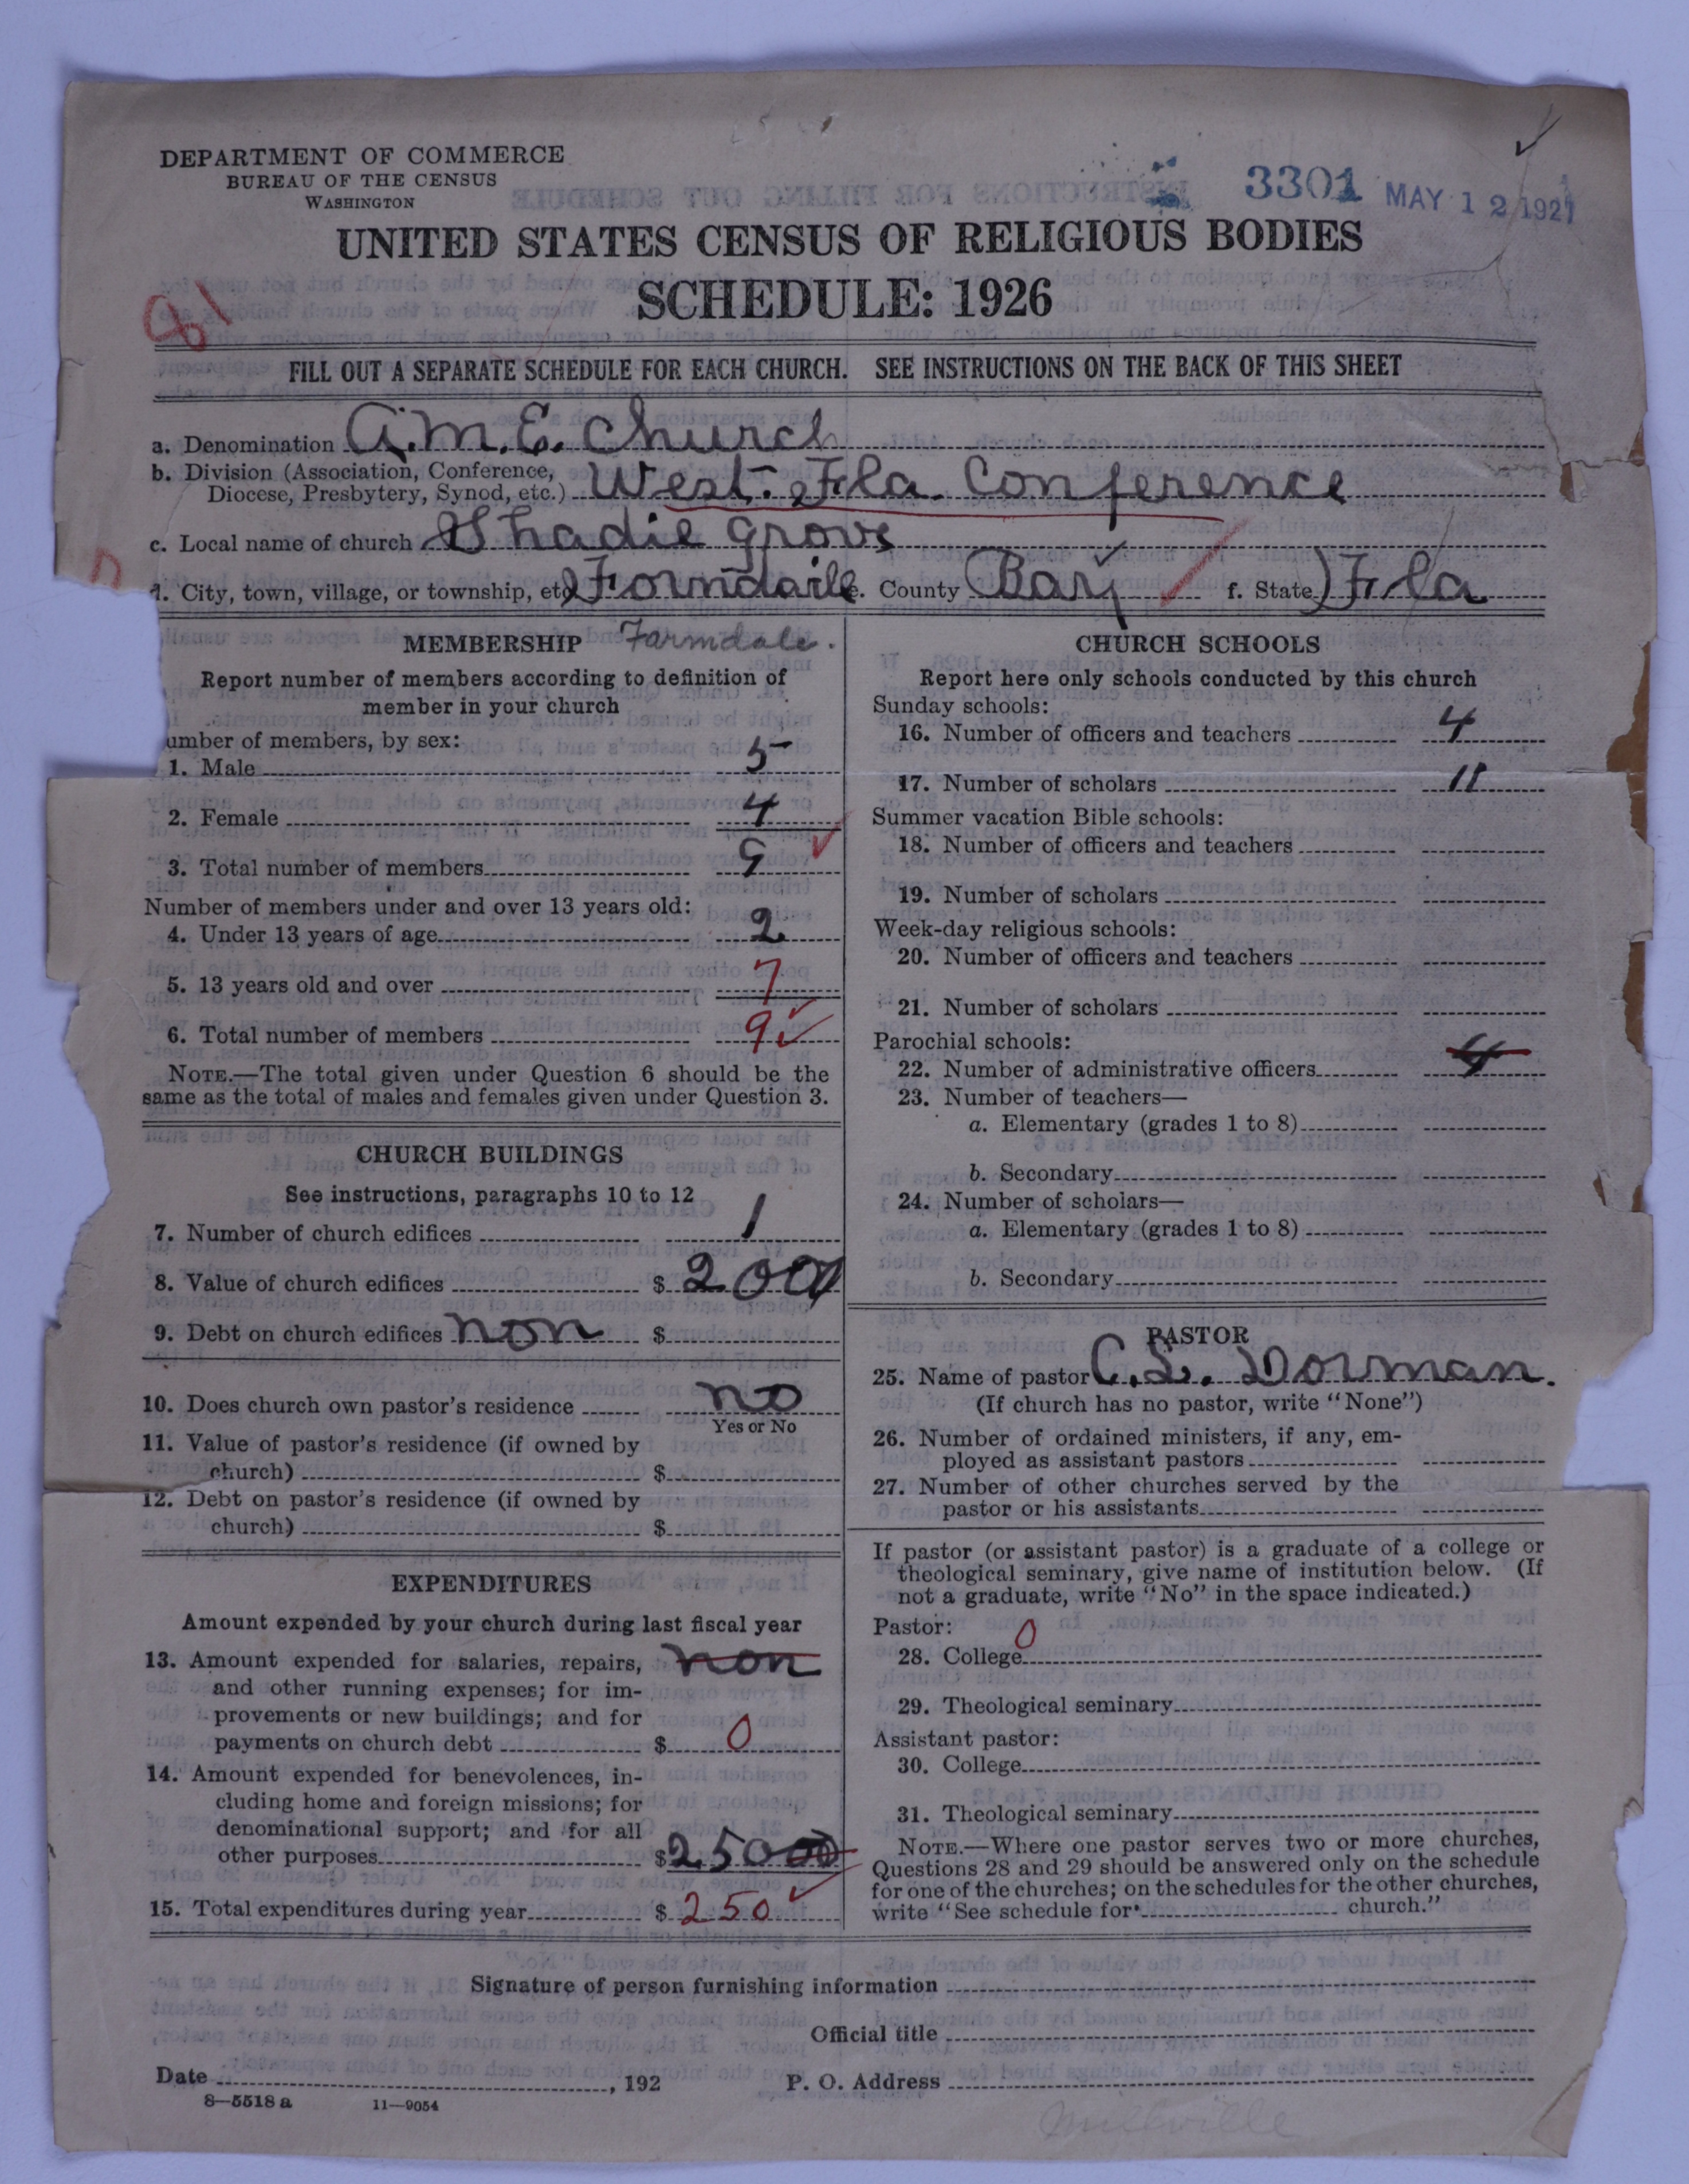 DEPARTMENT OF COMMERCE
BUREAU OF THE CENSUS
WASHINGTON
3301 MAY 12 1927
UNITED STATES CENSUS OF RELIGIOUS BODIES
SCHEDULE: 1926
81
FILL OUT A SEPARATE SCHEDULE FOR EACH CHURCH. SEE INSTRUCTIONS ON THE BACK OF THIS SHEET
a. Denomination A.M.E. Church
b. Division (Association, Conference,
Diocese, Presbytery, Synod, etc.) West. Fla. Conference
c. Local name of church Shadie Grove
d. City, town, village, or township, etc. Forndaile e. County Bay f. State Fla
MEMBERSHIP Farmdale.
Report number of members according to definition of
member in your church
umber of members, by sex:
1. Male 5
2. Female 4
3. Total number of members 9
Number of members under and over 13 years old:
4. Under 13 years of age 2
5. 13 years old and over 7
6. Total number of members 9
NOTE.—The total given under Question 6 should be the
same as the total of males and females given under Question 3.
CHURCH BUILDINGS
See instructions, paragraphs 10 to 12
7. Number of church edifices 1
8. Value of church edifices $ 200
9. Debt on church edifices non $
10. Does church own pastor's residence no
Yes or No
11. Value of pastor's residence (if owned by
church) $
12. Debt on pastor's residence (if owned by
church) $
EXPENDITURES
Amount expended by your church during last fiscal year
13. Amount expended for salaries, repairs, non
and other running expenses; for im-
provements or new buildings; and for
payments on church debt $ 0
14. Amount expended for benevolences, in-
cluding home and foreign missions; for
denominational support; and for all
other purposes $ 250 00
15. Total expenditures during year $ 250
CHURCH SCHOOLS
Report here only schools conducted by this church
Sunday schools:
16. Number of officers and teachers 4
17. Number of scholars 11
Summer vacation Bible schools:
18. Number of officers and teachers
19. Number of scholars
Week-day religious schools:
20. Number of officers and teachers
21. Number of scholars
Parochial schools:
22. Number of administrative officers 4
23. Number of teachers—
a. Elementary (grades 1 to 8)
b. Secondary
24. Number of scholars—
a. Elementary (grades 1 to 8)
b. Secondary
PASTOR
25. Name of pastor C.L. Dorman.
(If church has no pastor, write "None")
26. Number of ordained ministers, if any, em-
ployed as assistant pastors
27. Number of other churches served by the
pastor or his assistants
If pastor (or assistant pastor) is a graduate of a college or
theological seminary, give name of institution below. (If
not a graduate, write "No" in the space indicated.)
Pastor: 0
28. College
29. Theological seminary
Assistant pastor:
30. College
31. Theological seminary
NOTE.—Where one pastor serves two or more churches,
Questions 28 and 29 should be answered only on the schedule
for one of the churches; on the schedules for the other churches,
write "See schedule for church."
Signature of person furnishing information
Official title
Date , 192
P. O. Address
8—5518 a 11—9054
Millville